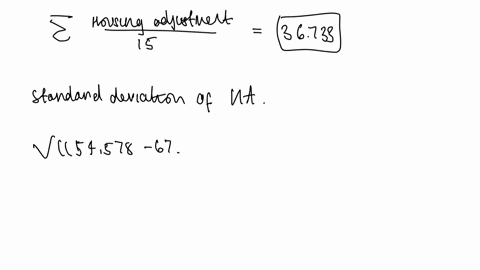 Σ Housing adjustment / 15 = 36.733
Standard deviation of HA.
√((54.578 - 67.